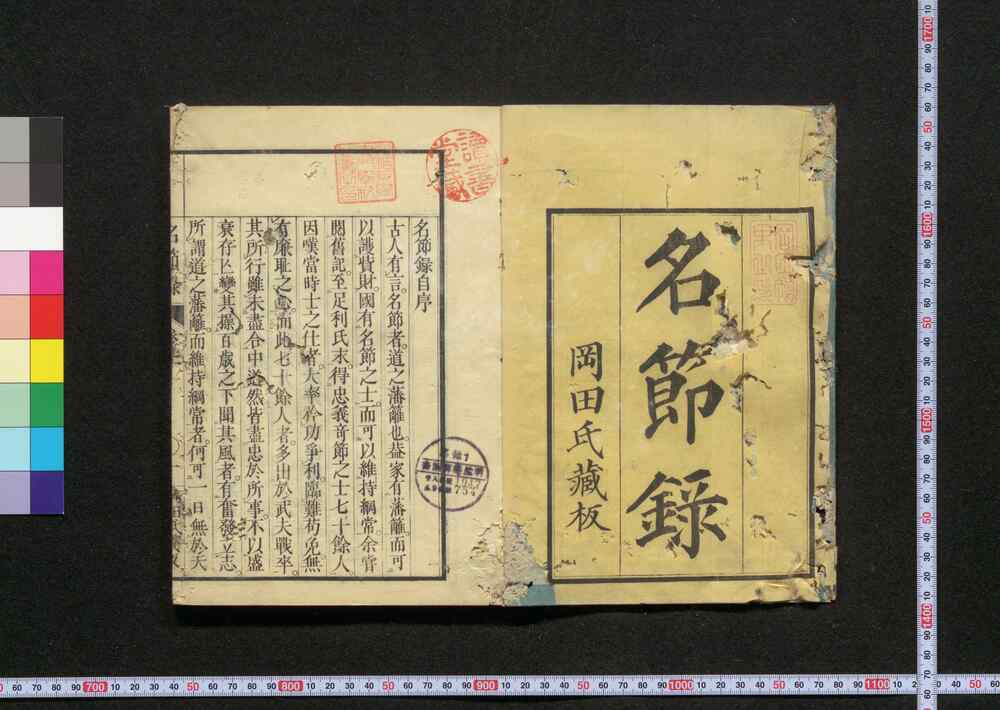 名節錄
岡田氏藏板
讀書堂藏
名節錄自序
古人有言名節者。道之藩籬也。蓋家有藩籬。而可
以護貲財。國有名節之士。而可以維持綱常。余嘗
閱舊記。至足利氏末得忠義奇節之士七十餘人
因嘆當時士之仕者。大率矜功爭利。臨難苟免無
有廉耻之心。而此七十餘人者。多出於武夫戰卒。
其所行雖未盡合中道。然皆盡忠於所事。不以盛
衰存亡變其操。百歲之下聞其風者。有奮發立志
所謂道之藩籬而維持綱常者。何可一日無於天
名節錄